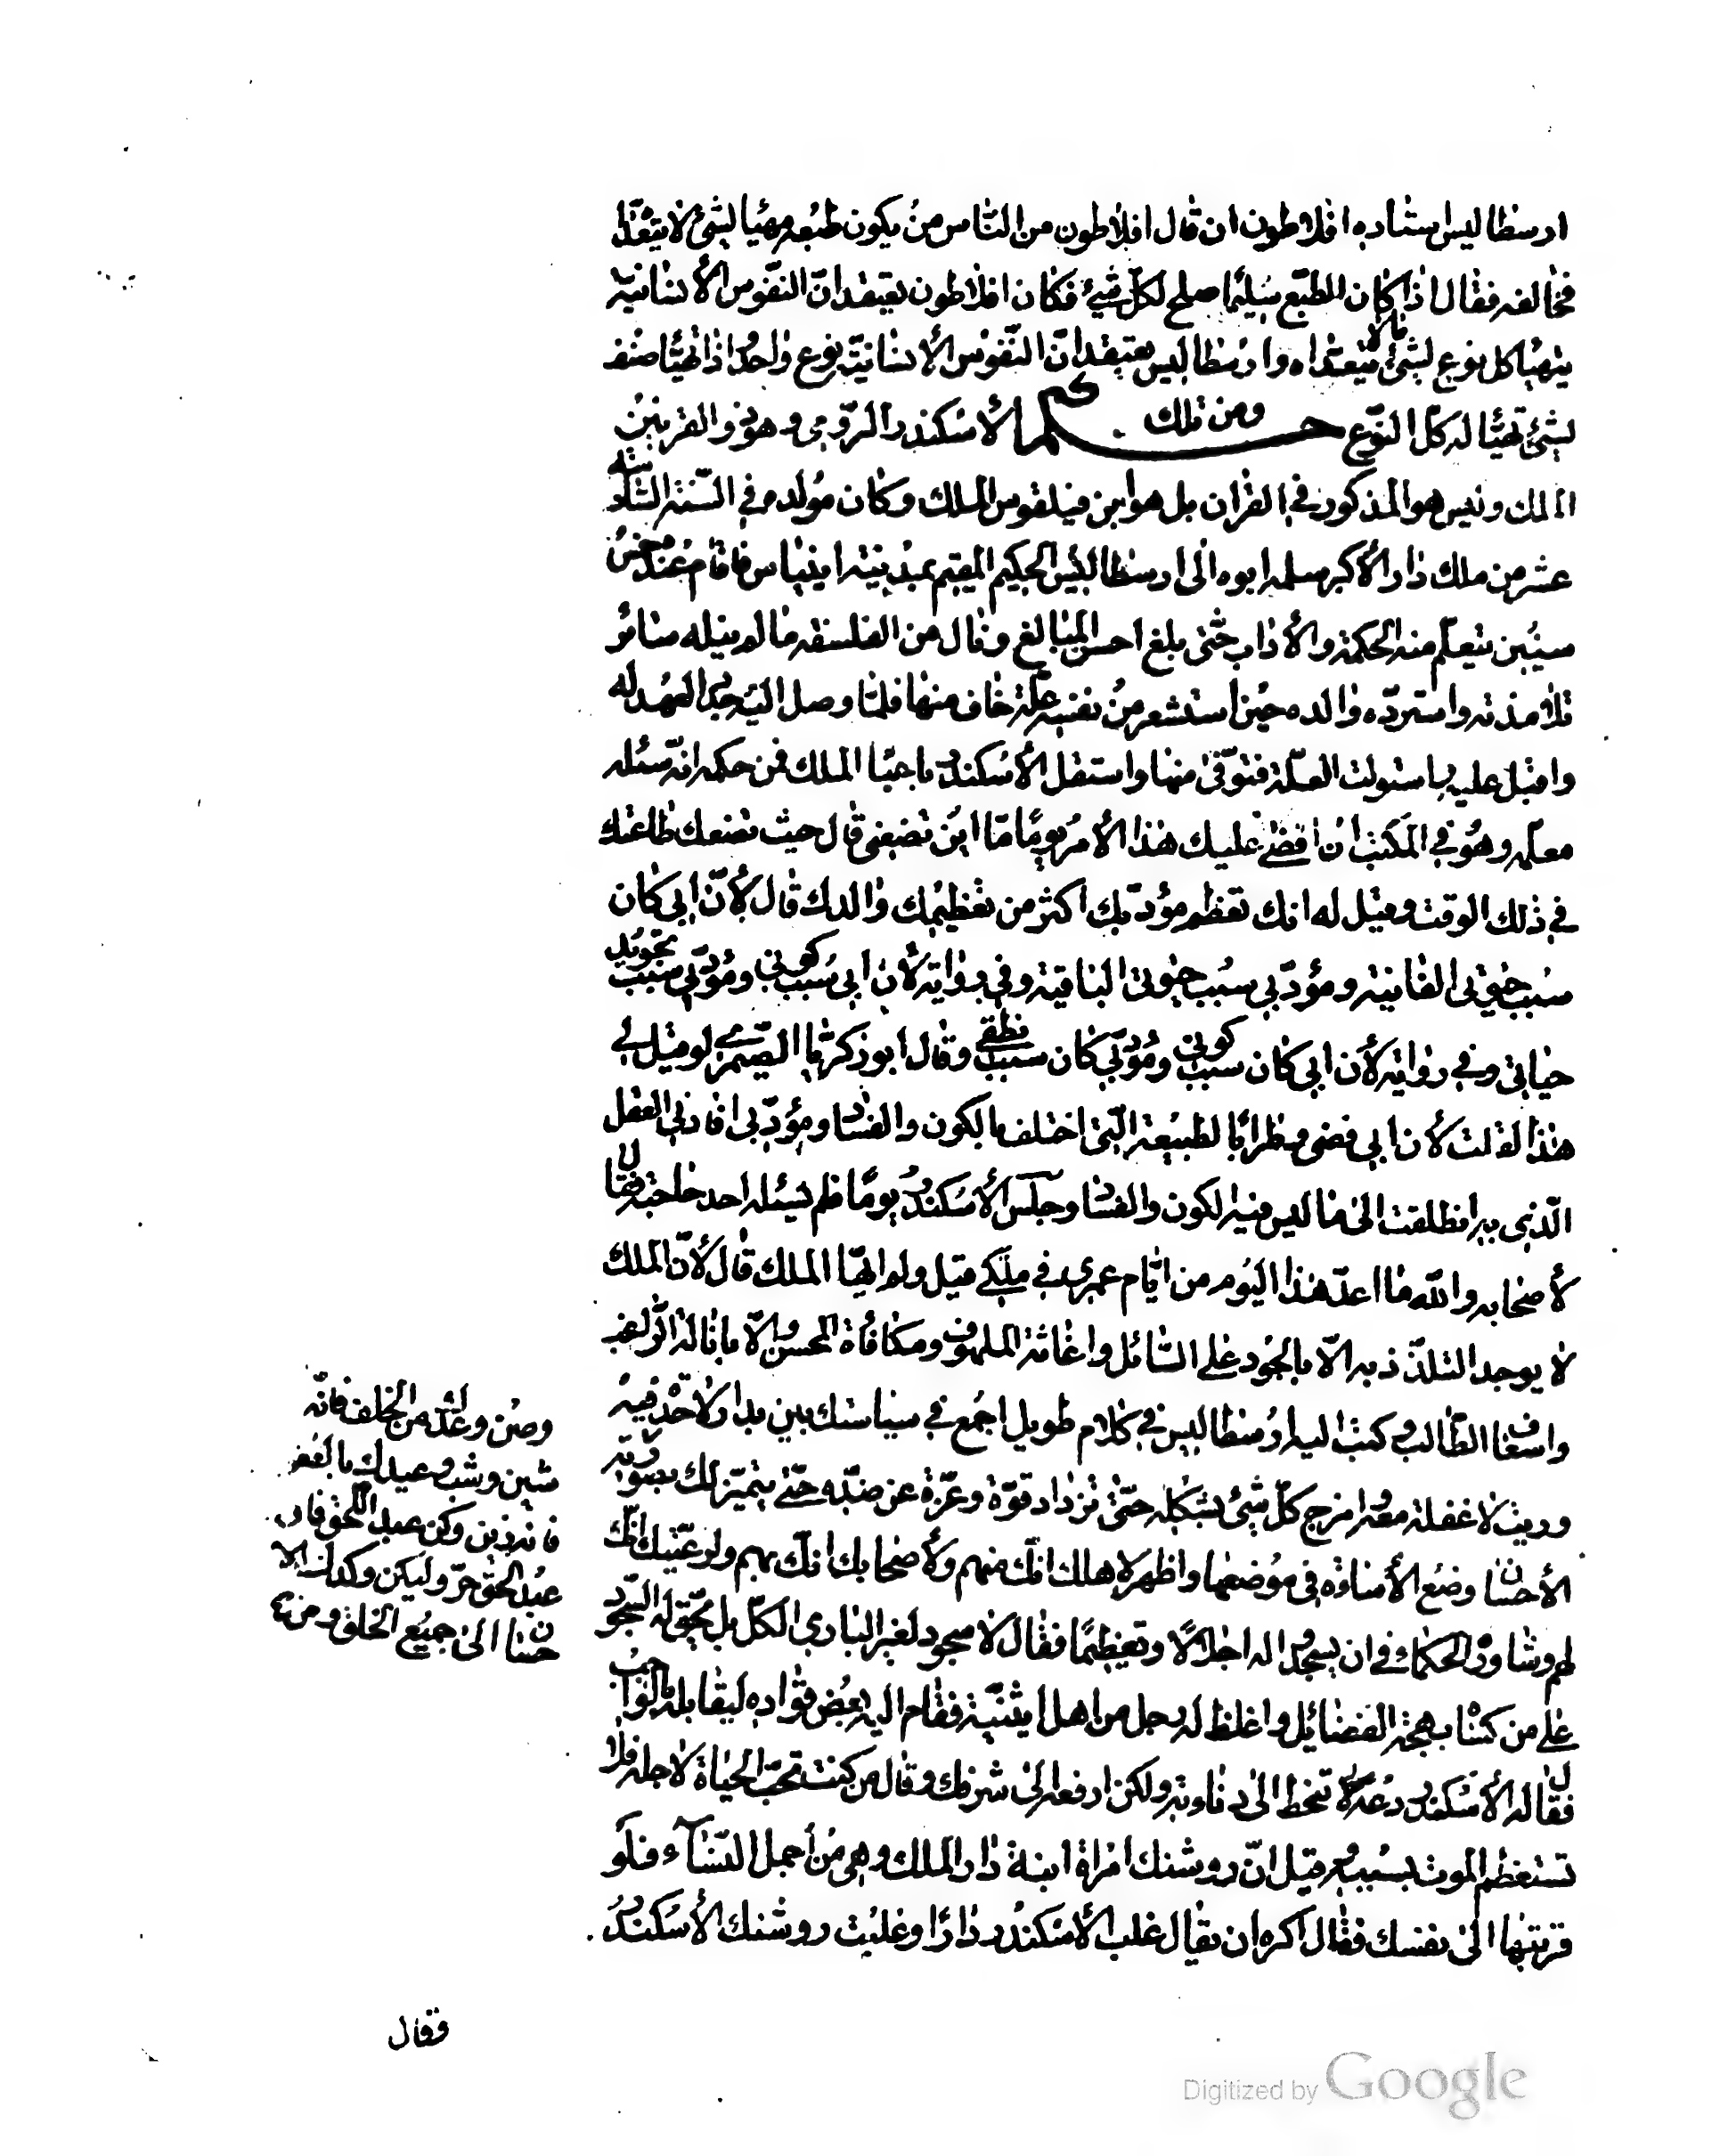 ارسطاليس استاده افلاطون ان قال افلاطون من الناس من يكون طبعه مهيّا لشئ لا يتعدّاه
فخالفه فقال اذا كان الطبع سليمًا صلح لكل شئ فكان افلاطون يعتقد انّ النفوس الأنسانية
يتهيّا كل نوع لشئ مّا لا يتعداه وارسطاليس يعتقد انّ النفوس الأنسانيّة نوع واحد اذا تهيّا صنف
لشئ تهيّا له كل النوع ومن تلك حكم الأسكندر الرّومي وهو ذو القرنين
الملك وليس هو المذكور في القرآن بل هو ابن فيلقوس الملك وكان مولده في السّنة الثالثة
عشر من ملك دارا الأكبر سلمه ابوه الى ارسطاليس الحكيم المقيم بمدينة اينياس فاقام عنده خمس
سنين يتعلّم منه الحكمة والأداب حتى بلغ احسن المبالغ ونال من الفلسفة ما لم ينله سائر
تلامذته واستردّه والده حين استشعر من نفسه علّة خاف منها فلمّا وصل اليه جدّد العهد له
واقبل عليه واستولت العلّة فتوفّى منها واستقل الأسكندر باعبا الملك فمن حكمه انّه سئله
معلّمه وهو في المكتب ان افضى عليك هذا الأمر يومًا مّا اين تضعنى قال حيث تضعك طاعتك
في ذلك الوقت وقيل له انك تعظم مؤدّبك اكثر من تعظيمك والدك قال لأنّ ابي كان
سبب حيوتى الفانية ومؤدّبي سبب حيوتى الباقية وفي رواية لأن ابي سبب كونى ومؤدّبي سبب تجويد
حياتي وفي رواية لأن ابي كان سبب كونى ومؤدّبي كان سبب نطقى وقال ابو زكريّا الصّيمرى لو قيل لى
هذا لقلت لأن ابي قضى وطرا بالطبيعة الّتى اختلف بالكون والفساد ومؤدّبي افادنى العقل
الّذى به انطلقت الى ما ليس فيه الكون والفساد وجلس الأسكندر يومًا فلم يسئله احد حاجة فقال
لأصحابه والله ما اعدّ هذا اليوم من ايّام عمرى في ملكى قيل ولم ايّها الملك قال لأنّ الملك
لا يوجد التلذّذ به الاّ بالجود على السّائل واغاثة الملهوف ومكافأة المحسن والاّ بانالة الرّاغب
واسعاف الطّالب وكتب اليه ارسطاليس في كلام طويل اجمع في سياستك بين بدار لا حدّة فيه
وريث لا غفلة معه امزج كلّ شئ بشكله حتّى تزداد قوّة وعزّة عن ضدّه حتّى يتميّز لك بصورته
الأحسان وضع الأمناؤه في موضعها واظهر لاهلك انّك منهم ولأصحابك انّك بهم ولرعيّتك انّك
لهم وشاور الحكما في ان يسجدوا له اجلالًا وتعظيمًا فقال لا سجود لغير الباري الكلّ بل يحقّ له السّجود
على من كساه بهجة الفضائل واغلظ له رجل من اهل ايثنيّة فقام اليه بعض قوّاده ليقابله بالواجب
فقال له الأسكندر دعه لا تنحط الى دناوته ولكن ارفعه الى شرفك وقال من كنت تحبّ الحياة لاجله فلا
تستعظم الموت بسببه وقيل انّ روشنك امراة ابنة دارا الملك وهى من اجمل النّسآء فلو
قرّبتها الى نفسك فقال اكره ان يقال غلب الأسكندر دارا وغلبت روشنك الأسكندر
وصُن وعدك من الخلف فانّه
شين وشب وعيدك بالعفو
فانه زين وكن عبد الحق فان
عبد الحق حرّ وليكن وكدك الا
حسان الى جميع الخلق ومن
فقال
Digitized by Google